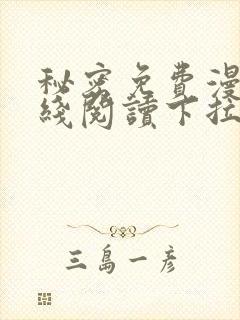 秘密免費漫
綫閱讀下拉
三島一彥